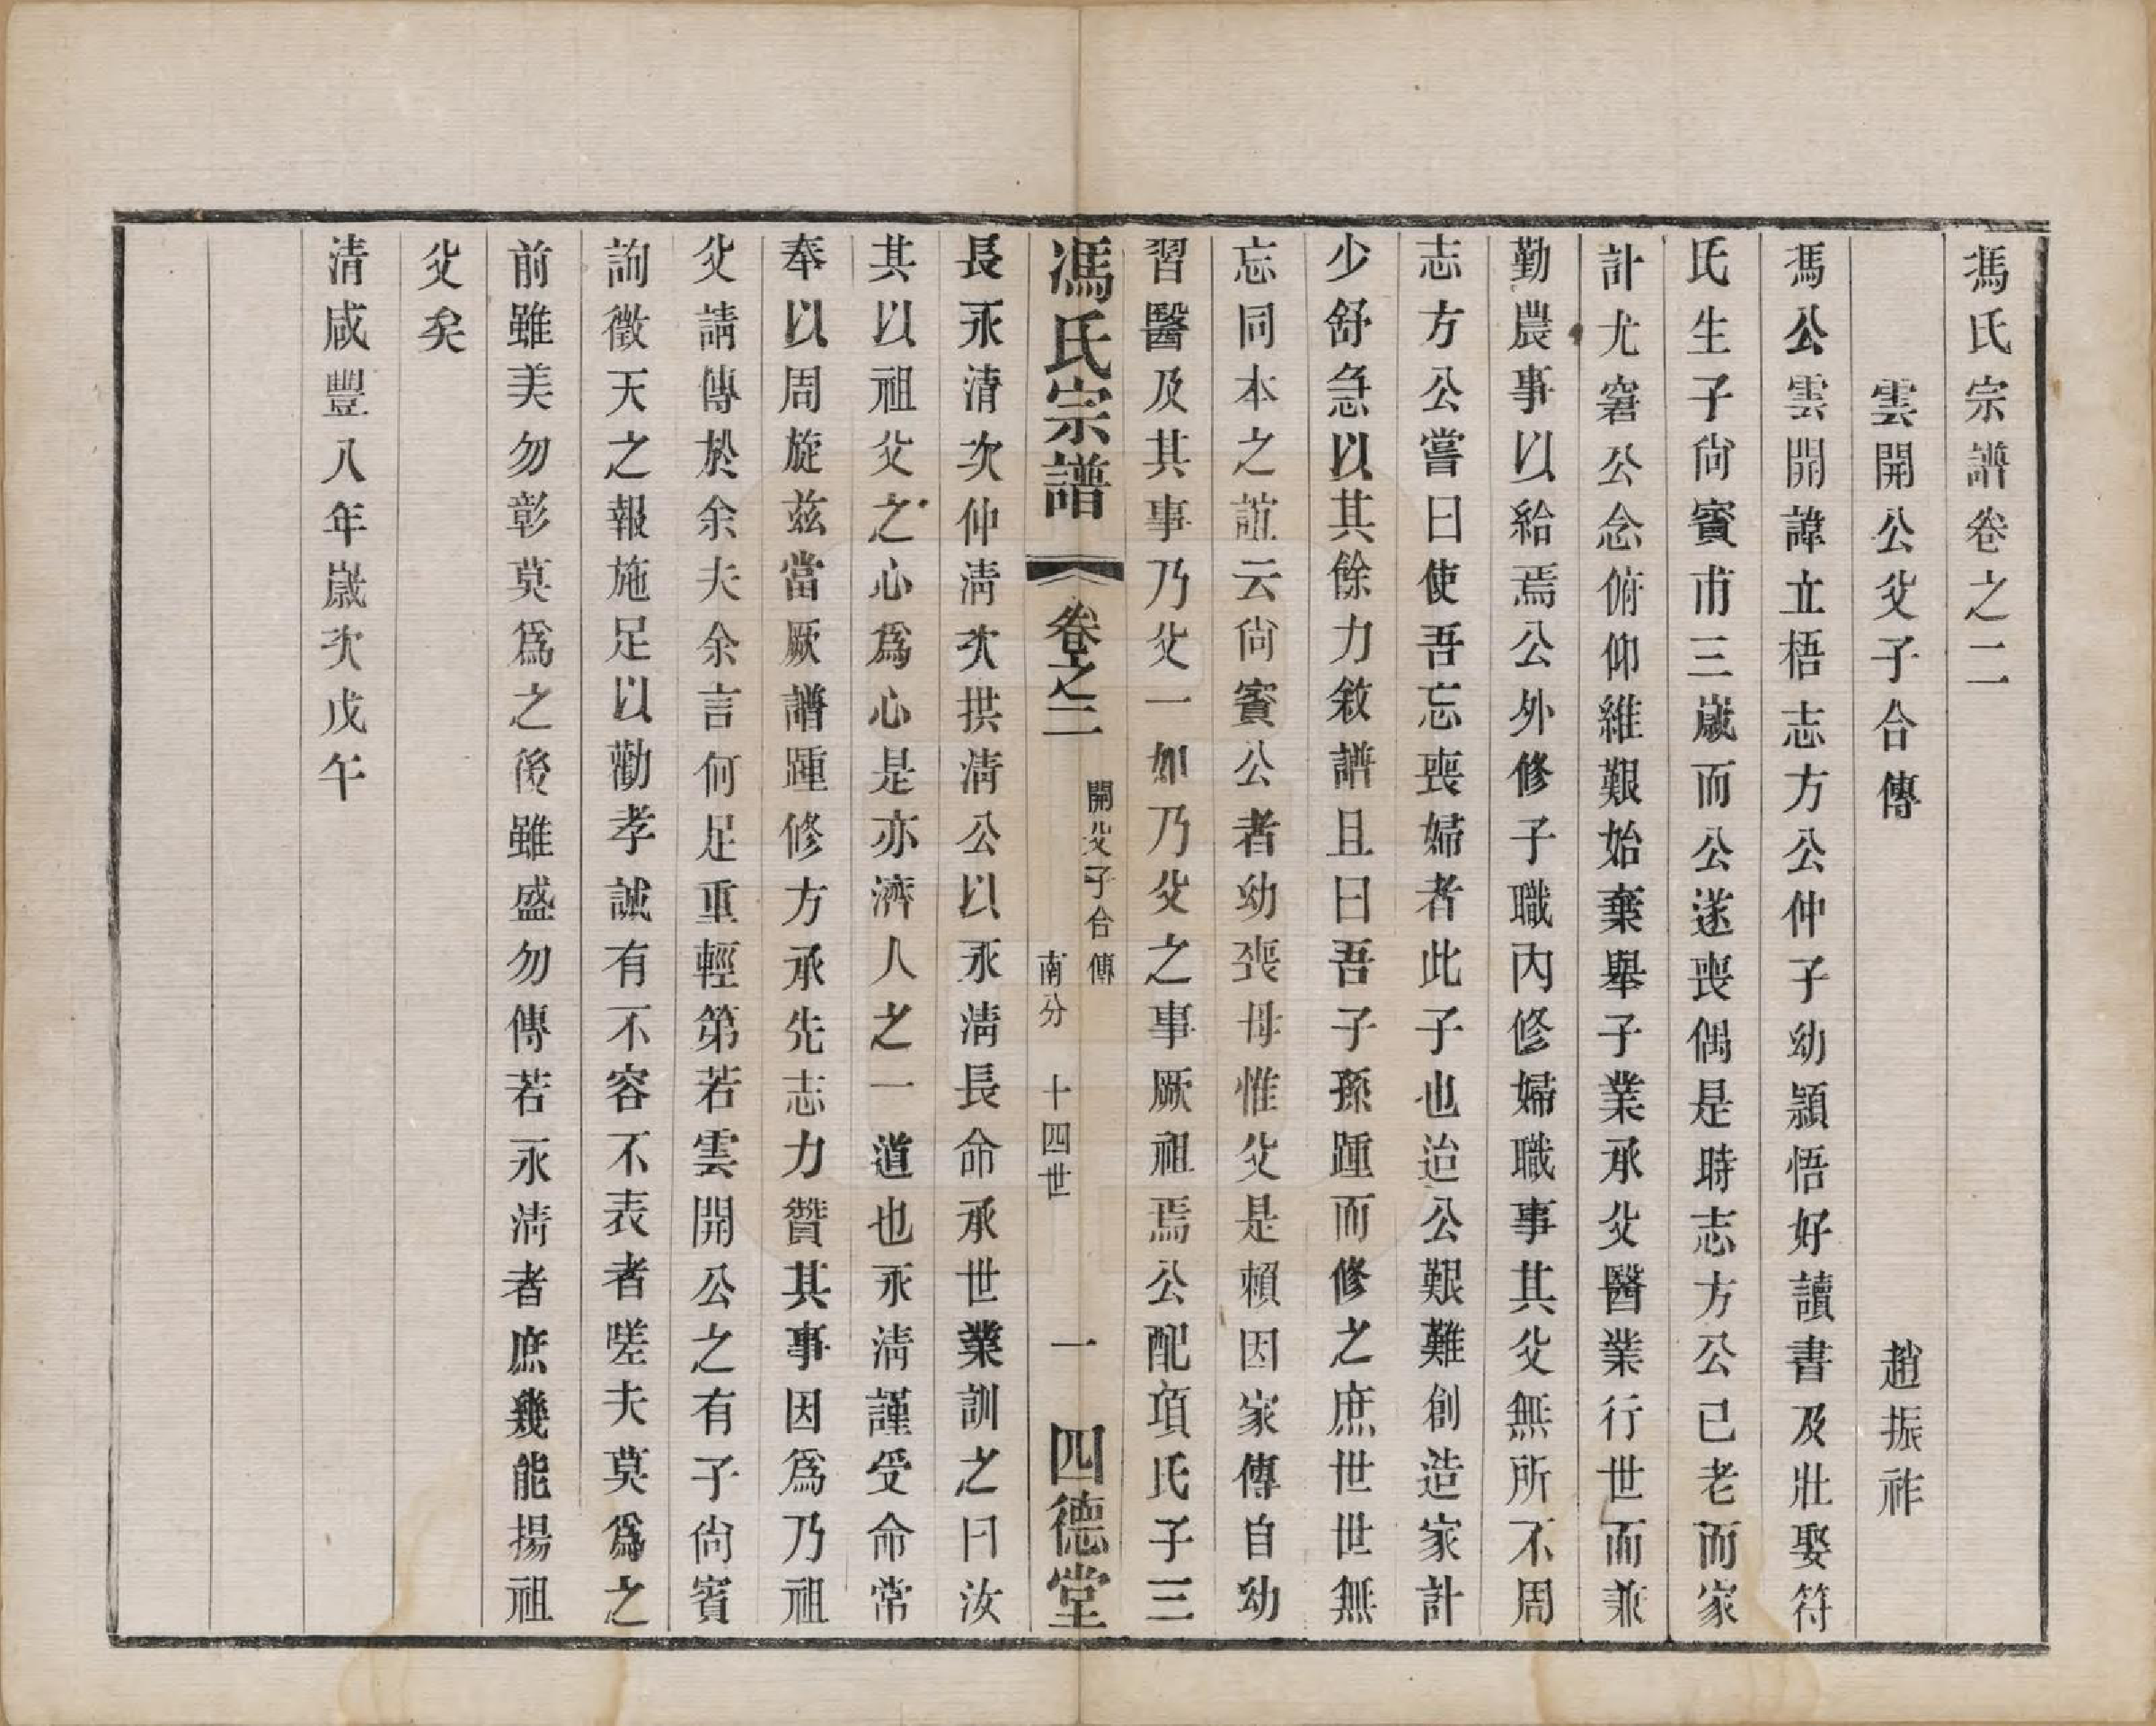 馮氏宗譜卷之二
雲開公父子合傳　趙振祚
馮公雲開諱立梧志方公仲子幼穎悟好讀書及壯娶符
氏生子尙賓甫三歲而公遂喪偶是時志方公已老而家
計尤窘公念俯仰維艱始棄舉子業承父醫業行世而兼
勤農事以給焉公外修子職內修婦職事其父無所不周
志方公嘗曰使吾忘喪婦者此子也迨公艱難創造家計
少舒急以其餘力敘譜且曰吾子孫踵而修之庶世世無
忘同本之誼云尙賓公者幼喪母惟父是賴因家傳自幼
習醫及其事乃父一如乃父之事厥祖焉公配項氏子三
馮氏宗譜　卷之二　開父子合傳　南分　十四世　一　四德堂
長永清次仲清次拱清公以永清長命承世業訓之曰汝
其以祖父之心爲心是亦濟人之一道也永清謹受命常
奉以周旋茲當厥譜踵修方承先志力贊其事因爲乃祖
父請傳於余夫余言何足重輕第若雲開公之有子尙賓
詢徵天之報施足以勸孝誠有不容不表者嗟夫莫爲之
前雖美勿彰莫爲之後雖盛勿傳若永清者庶幾能揚祖
父矣
清咸豐八年歲次戊午